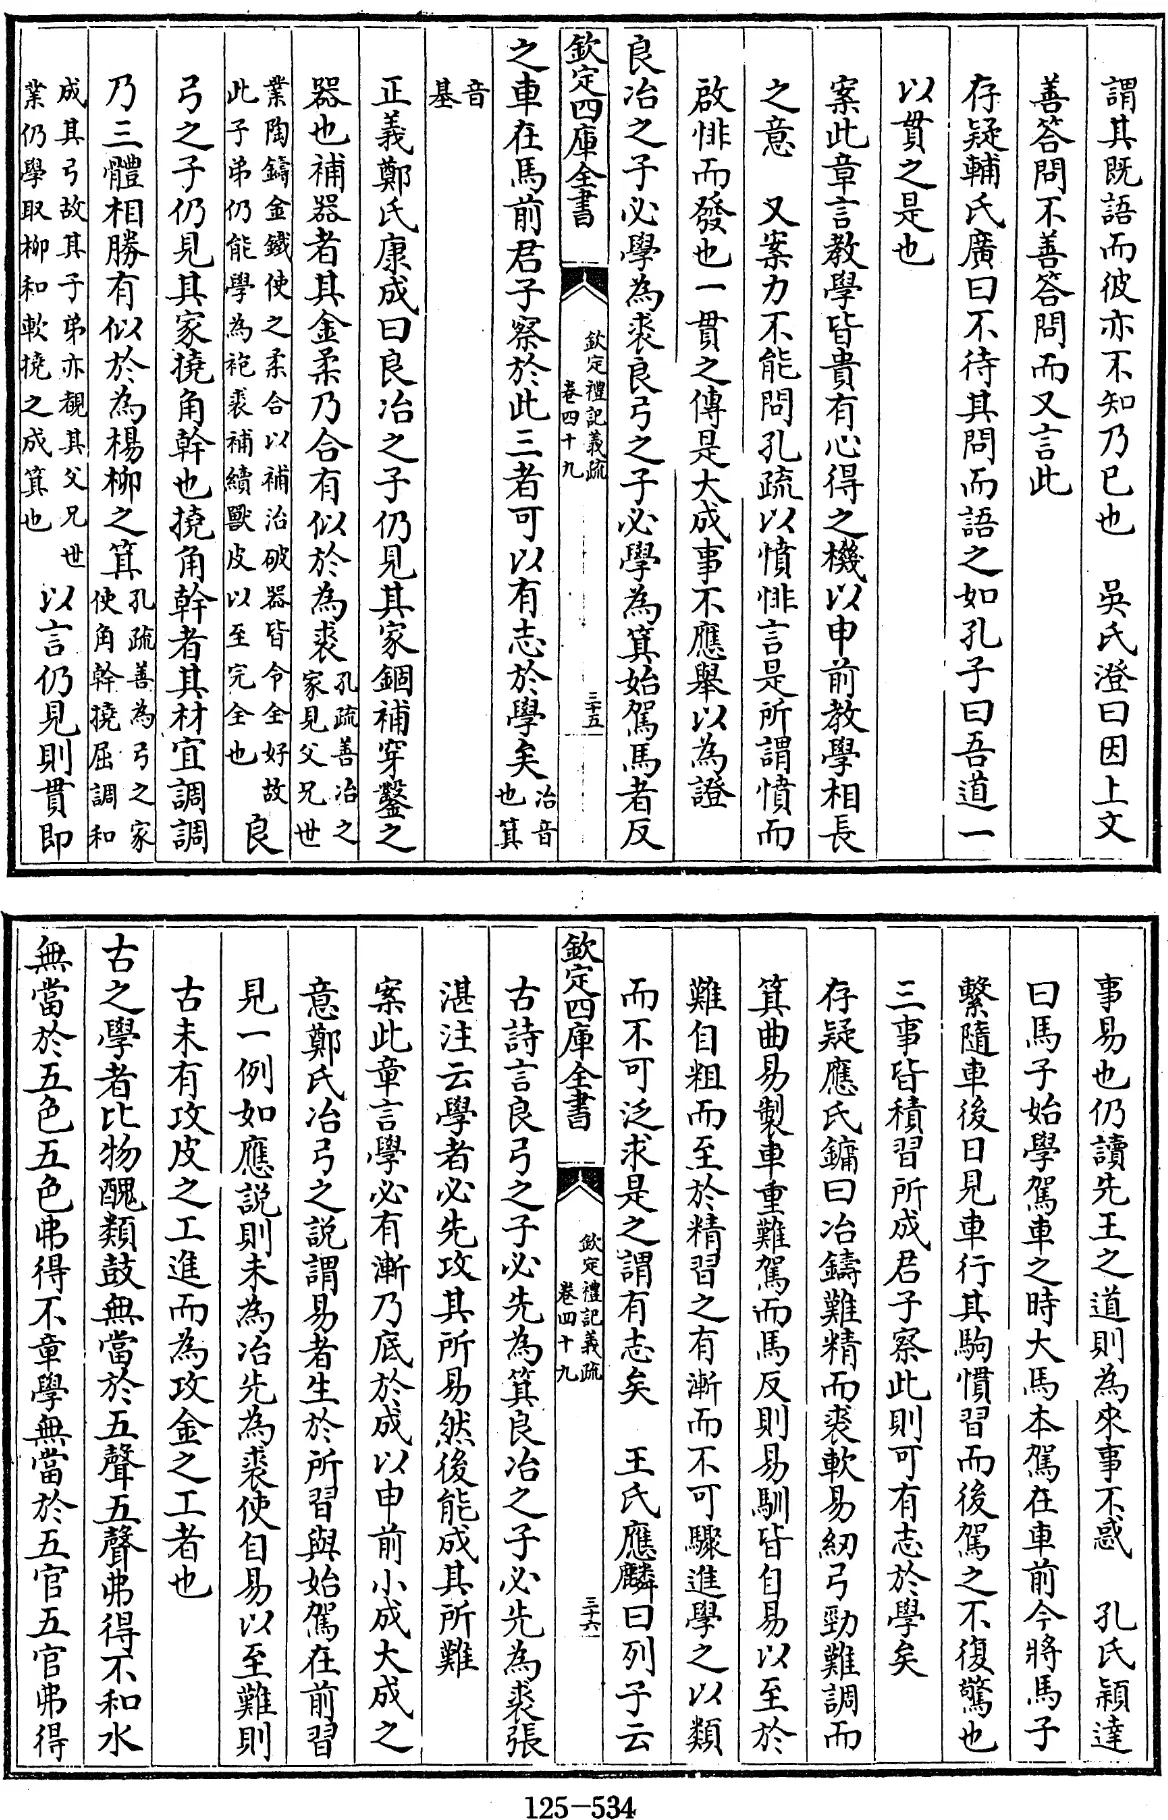 謂其既語而彼亦不知乃已也　吳氏澄曰因上文
善答問不善答問而又言此
存疑輔氏廣曰不待其問而語之如孔子曰吾道一
以貫之是也
案此章言教學皆貴有心得之機以申前教學相長
之意　又案力不能問孔疏以憤悱言是所謂憤而
啟悱而發也一貫之傳是大成事不應舉以為證
良冶之子必學為裘良弓之子必學為箕始駕馬者反
欽定四庫全書
欽定禮記義疏
卷四十九
三十五
之車在馬前君子察於此三者可以有志於學矣
冶音
也箕
音
基
正義鄭氏康成曰良冶之子仍見其家錮補穿鑿之
器也補器者其金柔乃合有似於為裘
孔疏善冶之
家見父兄世
業陶鑄金鐵使之柔合以補治破器皆令全好故
此子弟仍能學為袍裘補續獸皮以至完全也
良
弓之子仍見其家撓角幹也撓角幹者其材宜調調
乃三體相勝有似於為楊柳之箕
孔疏善為弓之家
使角幹撓屈調和
成其弓故其子弟亦覩其父兄世
業仍學取柳和軟撓之成箕也
以言仍見則貫即
事易也仍讀先王之道則為來事不惑　孔氏穎達
曰馬子始學駕車之時大馬本駕在車前今將馬子
繫隨車後日見車行其駒慣習而後駕之不復驚也
三事皆積習所成君子察此則可有志於學矣
存疑應氏鏞曰冶鑄難精而裘軟易紉弓勁難調而
箕曲易製車重難駕而馬反則易馴皆自易以至於
難自粗而至於精習之有漸而不可驟進學之以類
而不可泛求是之謂有志矣　王氏應麟曰列子云
欽定四庫全書
欽定禮記義疏
卷四十九
三十六
古詩言良弓之子必先為箕良冶之子必先為裘張
湛注云學者必先攻其所易然後能成其所難
案此章言學必有漸乃底於成以申前小成大成之
意鄭氏冶弓之説謂易者生於所習與始駕在前習
見一例如應説則未為冶先為裘使自易以至難則
古未有攻皮之工進而為攻金之工者也
古之學者比物醜類鼓無當於五聲五聲弗得不和水
無當於五色五色弗得不章學無當於五官五官弗得
125-534